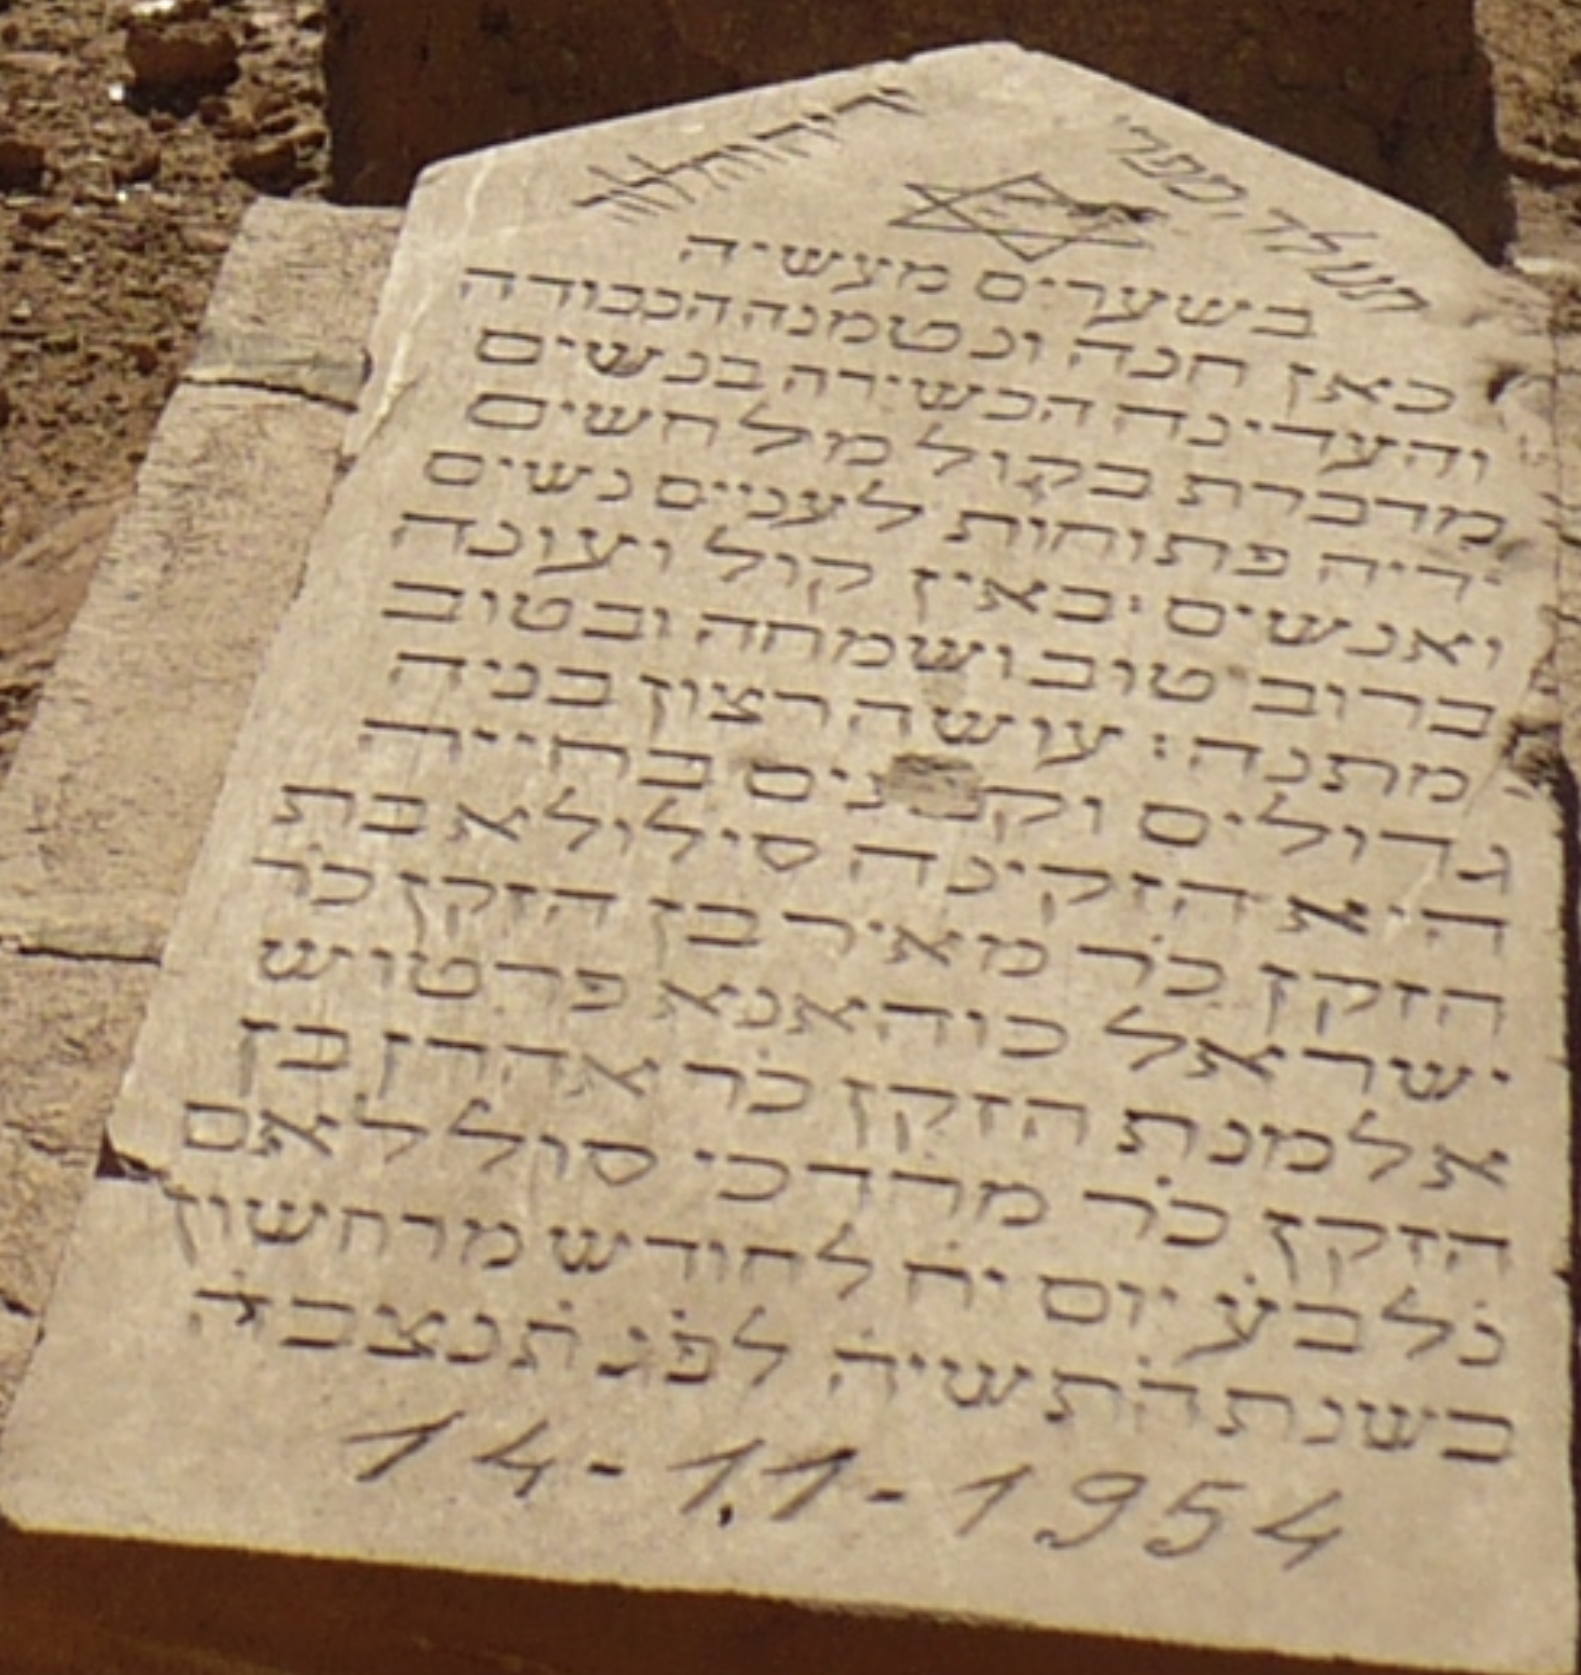 תנו לה מפרי
בשערים מעשיה
כאן חנה ונטמנה הכבודה
והעדינה הכשירה בנשים
מדברת בקול מלחשים
ידיה פתוחות לעניים נשים
ואנשים באין קול ועונה
ברוב טוב ושמחה ובטוב
מתנה: עושה רצון בניה
גדולים וקטנים בחייה
היא הזקינה סילולא בת
הזקן כר מאיר בן הזקן כר
ישראל כוהאנא פרטוש
אלמנת הזקן כר אהרן בן
הזקן כר מרדכי סוללאם
נלבע יום יח לחודש מרחשון
בשנת התשיה לפג תנצבה
14-11-1954